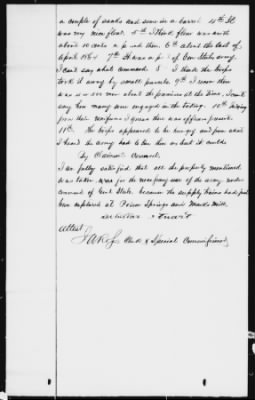 a couple of sacks and some in a barrel. 4th It
was very nice flour. 5th I think flour was worth
about 10 cents a pound then 6th about the last of
April 1864 7th It was a part of Gen Steele's army
I can't say what command 8 I think the troops
took it away by small parcels 9th I know there
was over about the premises at the time, I can't
say how many were engaged in the taking. 10th judging
from their uniforms I guess there was officers present.
11th. The troops appeared to be hungry and from what
I heard the army had to live on what it
By Claimants Counsel.
I am fully satisfied that all the property mentioned
was taken was for the necessary use of the army under
command of Genl Steele, because the supply trains had just
been captured at Poison Springs and Marks Mill.
Attest
Clerk & Special Commissioner